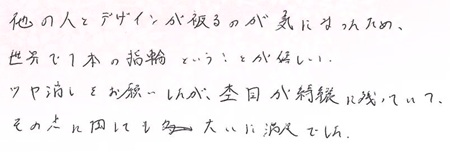 他の人とデザインが被るのが気になったため、
世界で1本の指輪ということが嬉しい。
ツヤ消しをお願いしたが、杢目が綺麗に残っていて、
その点に関しても大いに満足でした。